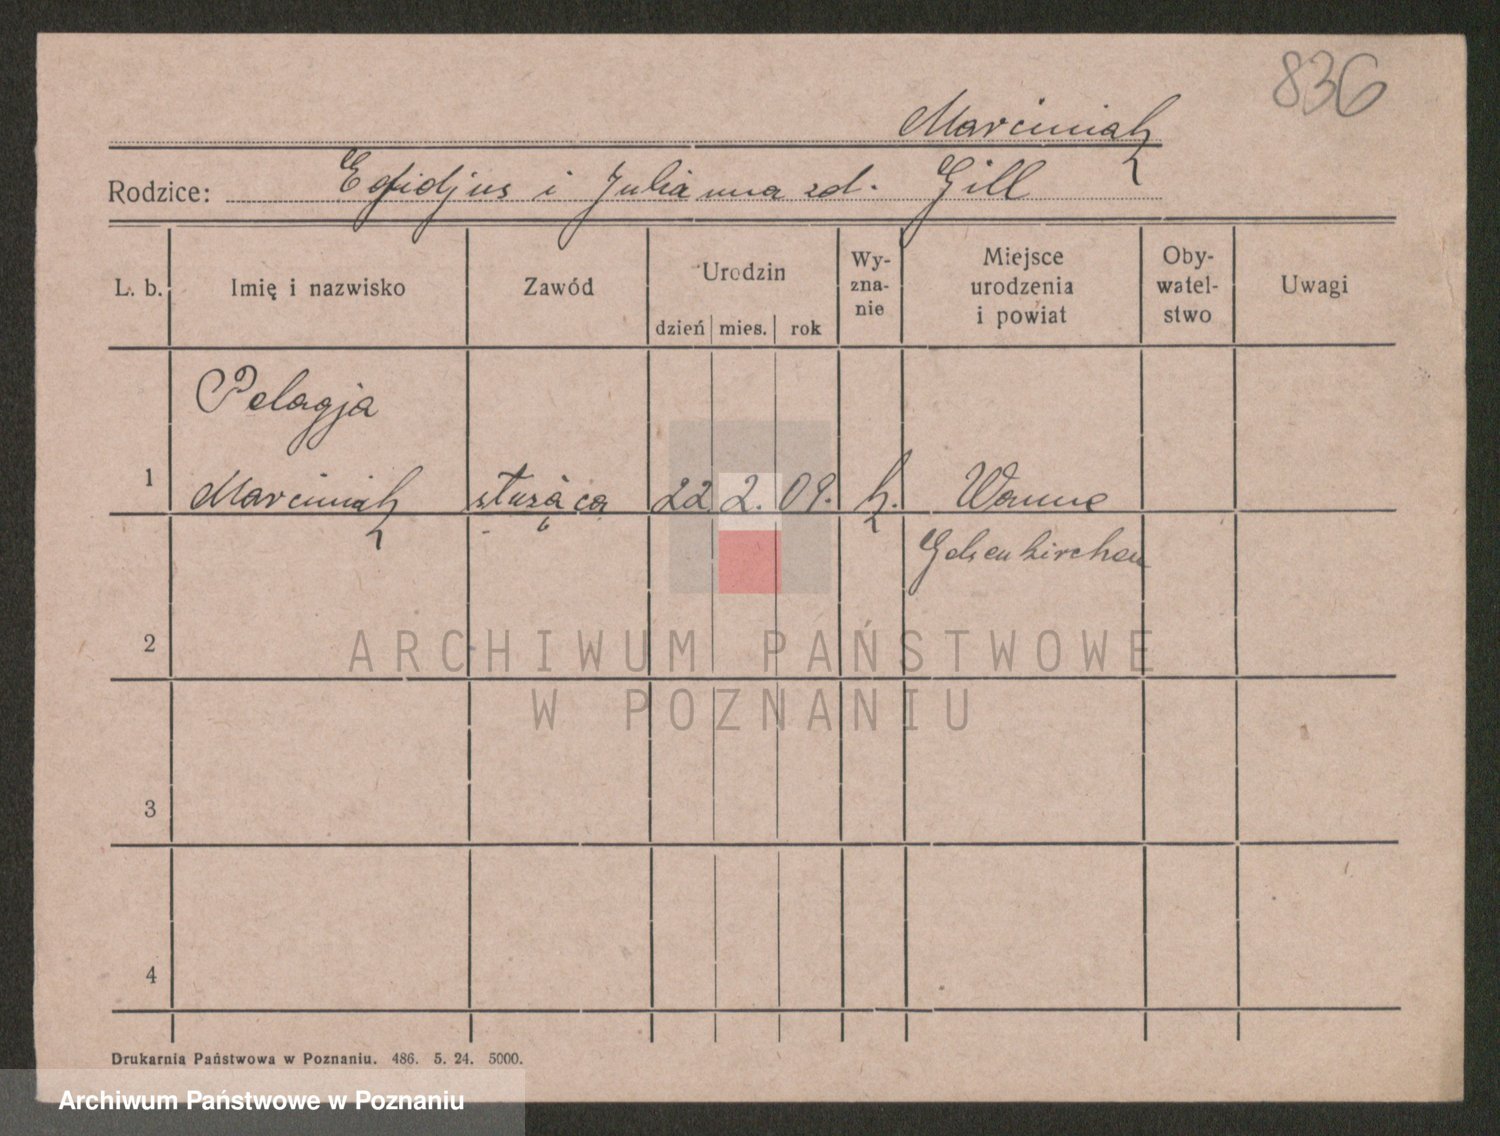 836
Marciniak
Rodzice: Egidjus i Julianna zd. Gill
L. b. Imię i nazwisko Zawód Urodzin dzień mies. rok Wy-zna-nie Miejsce urodzenia i powiat Oby-watel-stwo Uwagi
Pelagja
1 Marciniak służąca 22 2. 09. k. Wanne
Gelsenkirchen
2
ARCHIWUM PAŃSTWOWE
W POZNANIU
3
4
Drukarnia Państwowa w Poznaniu. 486. 5. 24. 5000.
Archiwum Państwowe w Poznaniu